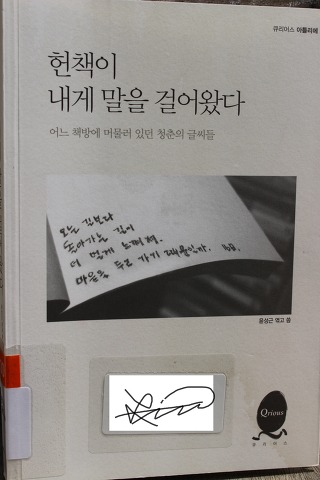 큐리어스 아틀리에
헌책이
내게 말을 걸어왔다
어느 책방에 머물러 있던 청춘의 글씨들
오는 길보다
돌아가는 길이
더 멀게 느껴져.
마음을 두고 가기 때문인가.
윤성근 엮고 씀
Qrious
큐리어스